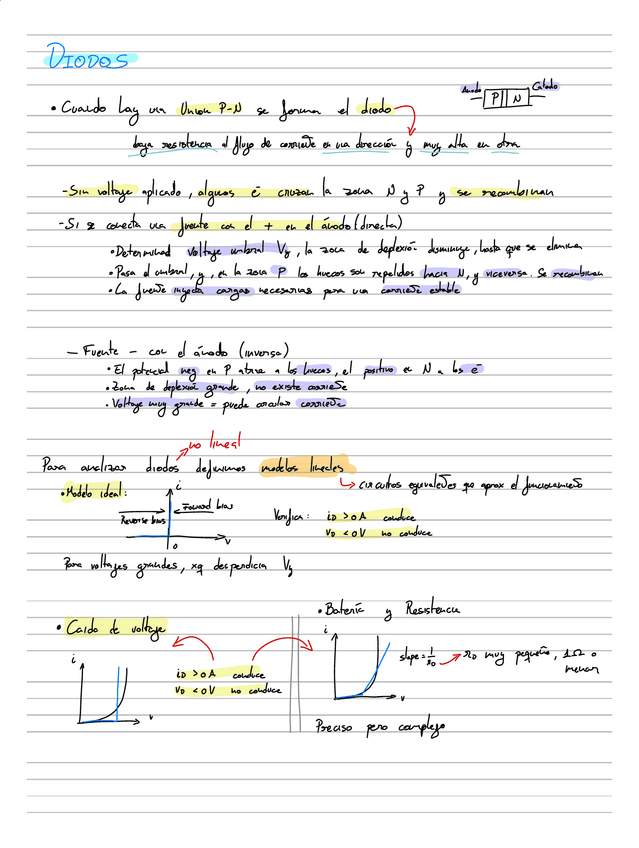 DIODOS
Anodo Cátodo
P N
• Cuando hay una Union P-N se forma el diodo
baja resistencia al flujo de corriente en una dirección y muy alta en otra
- Sin voltaje aplicado, algunos e- cruzan la zona N y P y se recombinan
- Si se conecta una fuente con el + en el ánodo (directa)
• Determinad voltaje umbral Vγ, la zona de deplexión disminuye, hasta que se elimina
• Pasa el umbral, y, en la zona P los huecos son repelidos hacia N, y viceversa. Se recombinan
• La fuente inyecta cargas necesarias para una corriente estable
- Fuente - con el ánodo (inversa)
• El potencial neg en P atrae a los huecos, el positivo en N a los e-
• Zona de deplexión grande, no existe corriente
• Voltaje muy grande = puede circular corriente
no lineal
Para analizar diodos definimos modelos lineales
circuitos equivalentes que aprox el funcionamiento
• Modelo ideal:
i
Forward bias
Reverse bias
v
0
Verifica: iD > 0 A conduce
VD < 0 V no conduce
Para voltajes grandes, xq desperdicia Vγ
• Caída de voltaje
i
v
iD > 0 A conduce
VD < 0 V no conduce
• Batería y Resistencia
i
v
slope = 1/rD
rD muy pequeño, 1Ω o menor
Preciso pero complejo